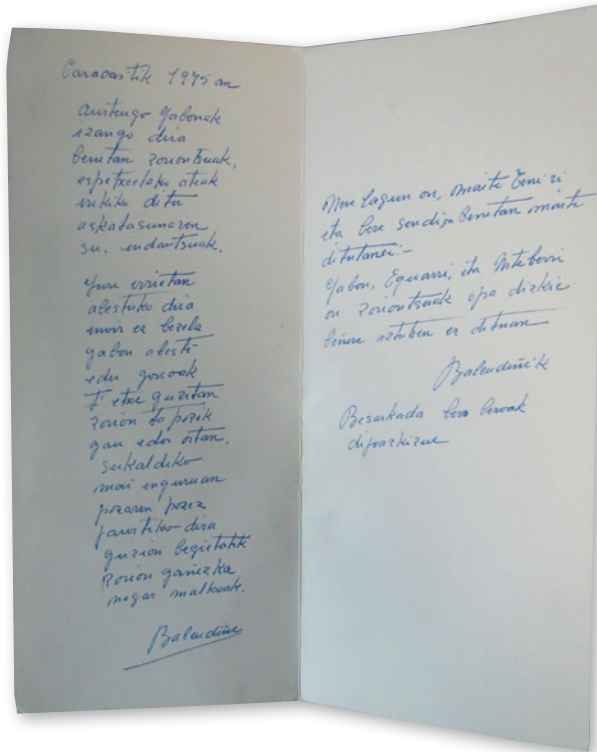 Caracastik 1975 an
aurtengo Gabonak
izango dira
benetan zoriontsuak.
espetxeetako ateak
irikiko ditu
askatasunaren
su. indartsuak.
Gure errietan
abestuko dira
inoiz ez bezela
gabon abesti
eder goxoak
T etxe guzitan
zorion ta pozik
gau eder ortan.
sukaldeko
mai inguruan
pozaren pozez
jaurtiko dira
guzion begietatik
zorion gañezka
negar malkoak.
Balendiñe
Nere lagun on, maite
eta bere sendija benetan maite
ditutanei:-
Gabon, Eguarri, eta Urteberri
on zoriontsuak opa dizkie
beñere aztuken ez dituan
Balendiñe'k
Besarkada bero beroak